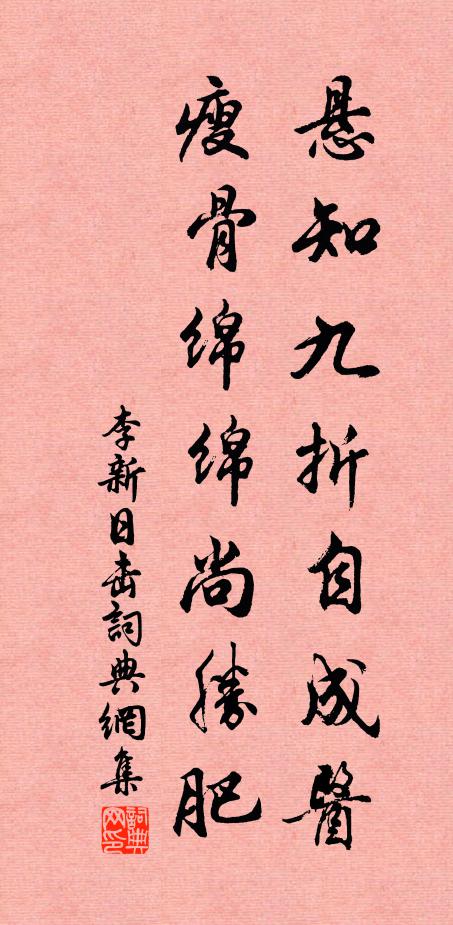 悬知九折自成醫
瘦骨绵绵尚勝肥
李新日詞典網集
詞典网印